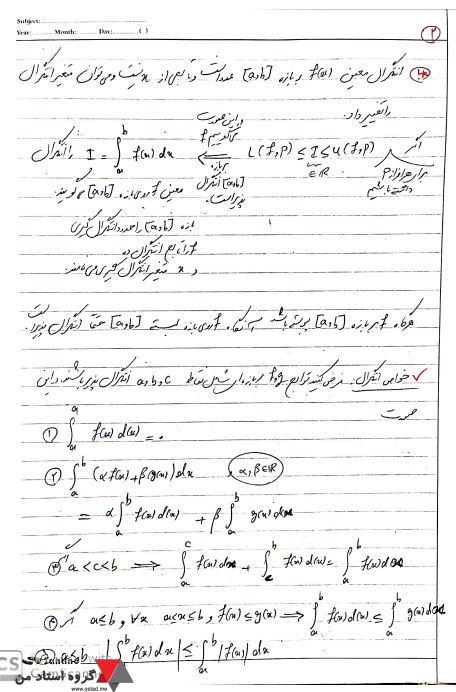 Subject:
Year: Month: Day: ( )
۲
انتگرال معین f(x) بر بازه [a,b] عدد است و تابعی از x نیست و می‌توان متغیر انتگرال
را تغییر داد.
اگر برای هر افراز P داشته باشیم L(f,p) ≤ I ≤ U(f,p) ⟸ و در این صورت می‌گوییم f بر بازه [a,b] انتگرال پذیر است. I = ∫_a^b f(x) dx را انتگرال
∈ IR
معین f روی بازه [a,b] می‌گویند.
بازه [a,b] را حدود انتگرال گیری
f را تابع انتگرال ده
و x متغیر انتگرال گیری می‌نامند.
هرگاه f بر بازه [a,b] پیوسته باشد آنگاه f روی بازه بسته [a,b] حتما انتگرال پذیر است.
✓ خواص انتگرال: فرض کنید توابع f و g بر بازه‌ای شامل نقاط a, b و c انتگرال پذیر باشند در این
صورت
① ∫_a^a f(x) d(x) = ۰
② ∫_a^b (α f(x) + β g(x)) dx , α, β ∈ IR
= α ∫_a^b f(x) d(x) + β ∫_a^b g(x) dx
③ اگر a < c < b ⟹ ∫_a^c f(x) dx + ∫_c^b f(x) d(x) = ∫_a^b f(x) dx
④ اگر a ≤ b , ∀x a ≤ x ≤ b , f(x) ≤ g(x) ⟹ ∫_a^b f(x) d(x) ≤ ∫_a^b g(x) dx
⑤ a ≤ b |∫_a^b f(x) dx| ≤ ∫_a^b |f(x)| dx
CS
گروه استاد من
www.ostad.me